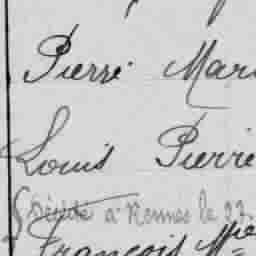 Pierre Mari
Louis Pierre
Décédé à Rennes le 23
François Mie